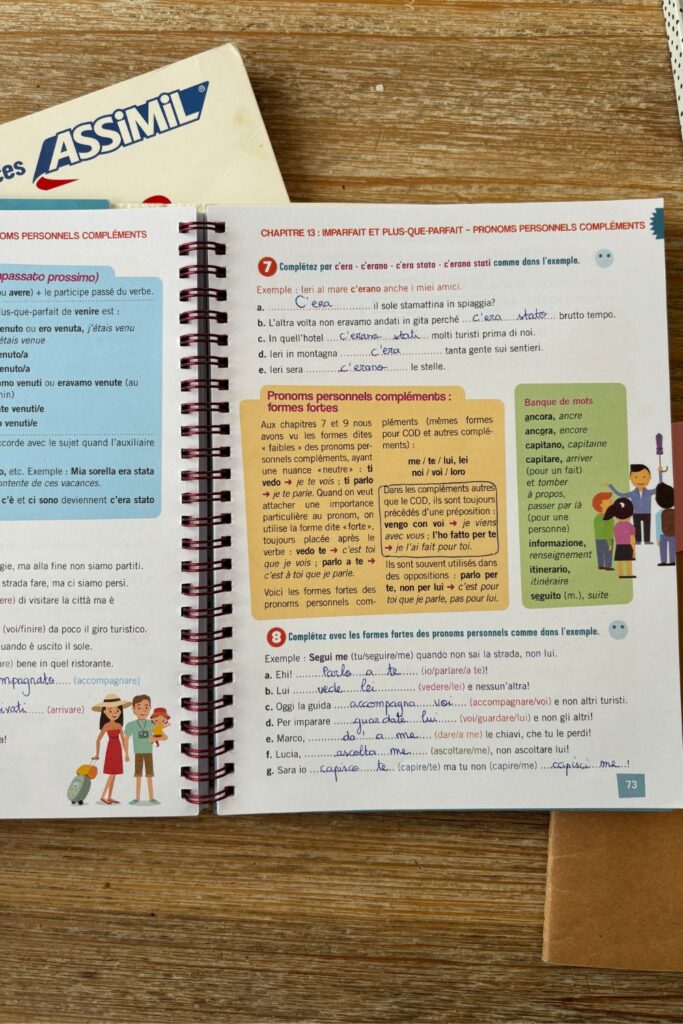 ces ASSiMiL
OMS PERSONNELS COMPLÉMENTS
(passato prossimo)
ou avere) + le participe passé du verbe.
lus-que-parfait de venire est :
enuto ou ero venuta, j'étais venu
étais venue
enuto/a
enuto/a
amo venuti ou eravamo venute (au
nin)
te venuti/e
o venuti/e
ccorde avec le sujet quand l'auxiliaire
o, etc. Exemple : Mia sorella era stata
ontente de ces vacances.
c'è et ci sono deviennent c'era stato
gie, ma alla fine non siamo partiti.
strada fare, ma ci siamo persi.
ere) di visitare la città ma è
(voi/finire) da poco il giro turistico.
uando è uscito il sole.
are) bene in quel ristorante.
mpagnato (accompagnare)
ivati (arrivare)
a!
CHAPITRE 13 : IMPARFAIT ET PLUS-QUE-PARFAIT – PRONOMS PERSONNELS COMPLÉMENTS
7 Complétez par c'era - c'erano - c'era stato - c'erano stati comme dans l'exemple.
Exemple : Ieri al mare c'erano anche i miei amici.
a. C'era il sole stamattina in spiaggia?
b. L'altra volta non eravamo andati in gita perché c'era stato brutto tempo.
c. In quell'hotel c'erano stati molti turisti prima di noi.
d. Ieri in montagna c'era tanta gente sui sentieri.
e. Ieri sera c'erano le stelle.
Pronoms personnels compléments :
formes fortes
Aux chapitres 7 et 9 nous
avons vu les formes dites
« faibles » des pronoms per-
sonnels compléments, ayant
une nuance «neutre» : ti
vedo ➔ je te vois ; ti parlo
➔ je te parle. Quand on veut
attacher une importance
particulière au pronom, on
utilise la forme dite «forte»,
toujours placée après le
verbe : vedo te ➔ c'est toi
que je vois ; parlo a te ➔
c'est à toi que je parle.
Voici les formes fortes des
pronoms personnels com-
pléments (mêmes formes
pour COD et autres complé-
ments) :
me / te / lui, lei
noi / voi / loro
Dans les compléments autres
que le COD, ils sont toujours
précédés d'une préposition :
vengo con voi ➔ je viens
avec vous ; l'ho fatto per te
➔ je l'ai fait pour toi.
Ils sont souvent utilisés dans
des oppositions : parlo per
te, non per lui ➔ c'est pour
toi que je parle, pas pour lui.
Banque de mots
ancora, ancre
ancora, encore
capitano, capitaine
capitare, arriver
(pour un fait)
et tomber
à propos,
passer par là
(pour une
personne)
informazione,
renseignement
itinerario,
itinéraire
seguito (m.), suite
8 Complétez avec les formes fortes des pronoms personnels comme dans l'exemple.
Exemple : Segui me (tu/seguire/me) quando non sai la strada, non lui.
a. Ehi! Parlo a te (io/parlare/a te)!
b. Lui vede lei (vedere/lei) e nessun'altra!
c. Oggi la guida accompagna voi (accompagnare/voi) e non altri turisti.
d. Per imparare guardate lui (voi/guardare/lui) e non gli altri!
e. Marco, da' a me (dare/a me) le chiavi, che tu le perdi!
f. Lucia, ascolta me (ascoltare/me), non ascoltare lui!
g. Sara io capisco te (capire/te) ma tu non (capire/me) capisci me !
73